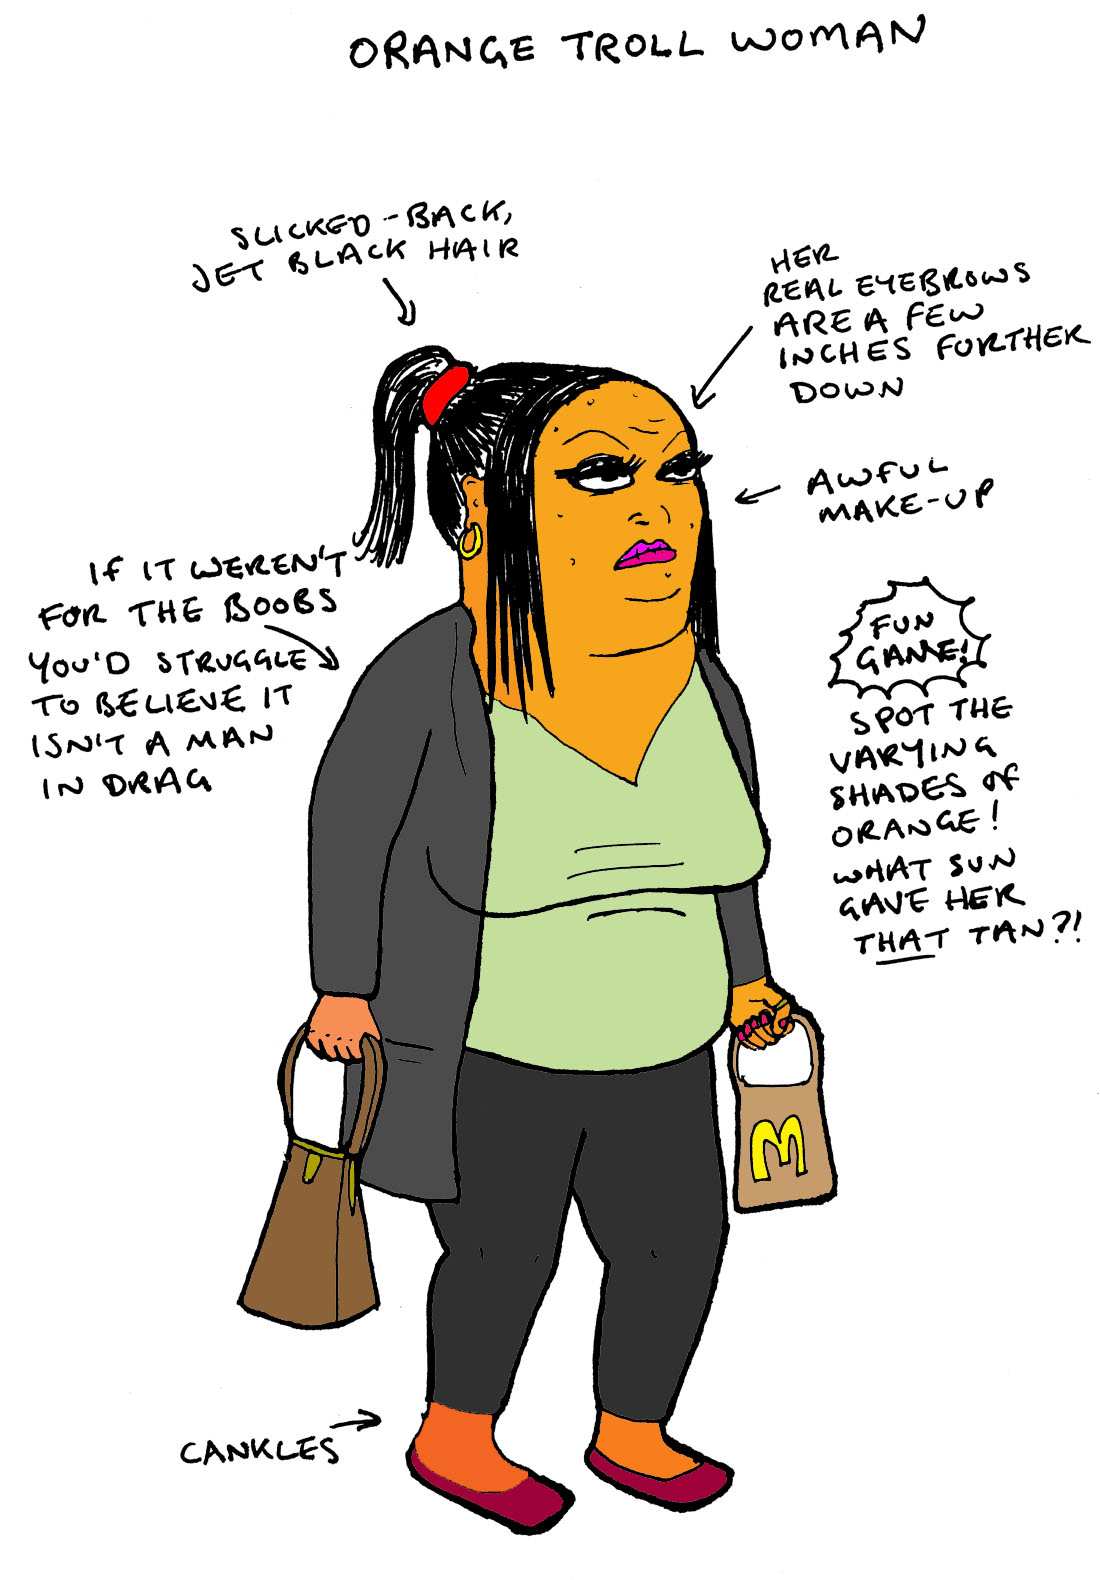 ORANGE TROLL WOMAN
SLICKED-BACK,
JET BLACK HAIR
HER
REAL EYEBROWS
ARE A FEW
INCHES FURTHER
DOWN
AWFUL
MAKE-UP
IF IT WEREN'T
FOR THE BOOBS
YOU'D STRUGGLE
TO BELIEVE IT
ISN'T A MAN
IN DRAG
FUN
GAME!
SPOT THE
VARYING
SHADES OF
ORANGE!
WHAT SUN
GAVE HER
THAT TAN?!
M
CANKLES